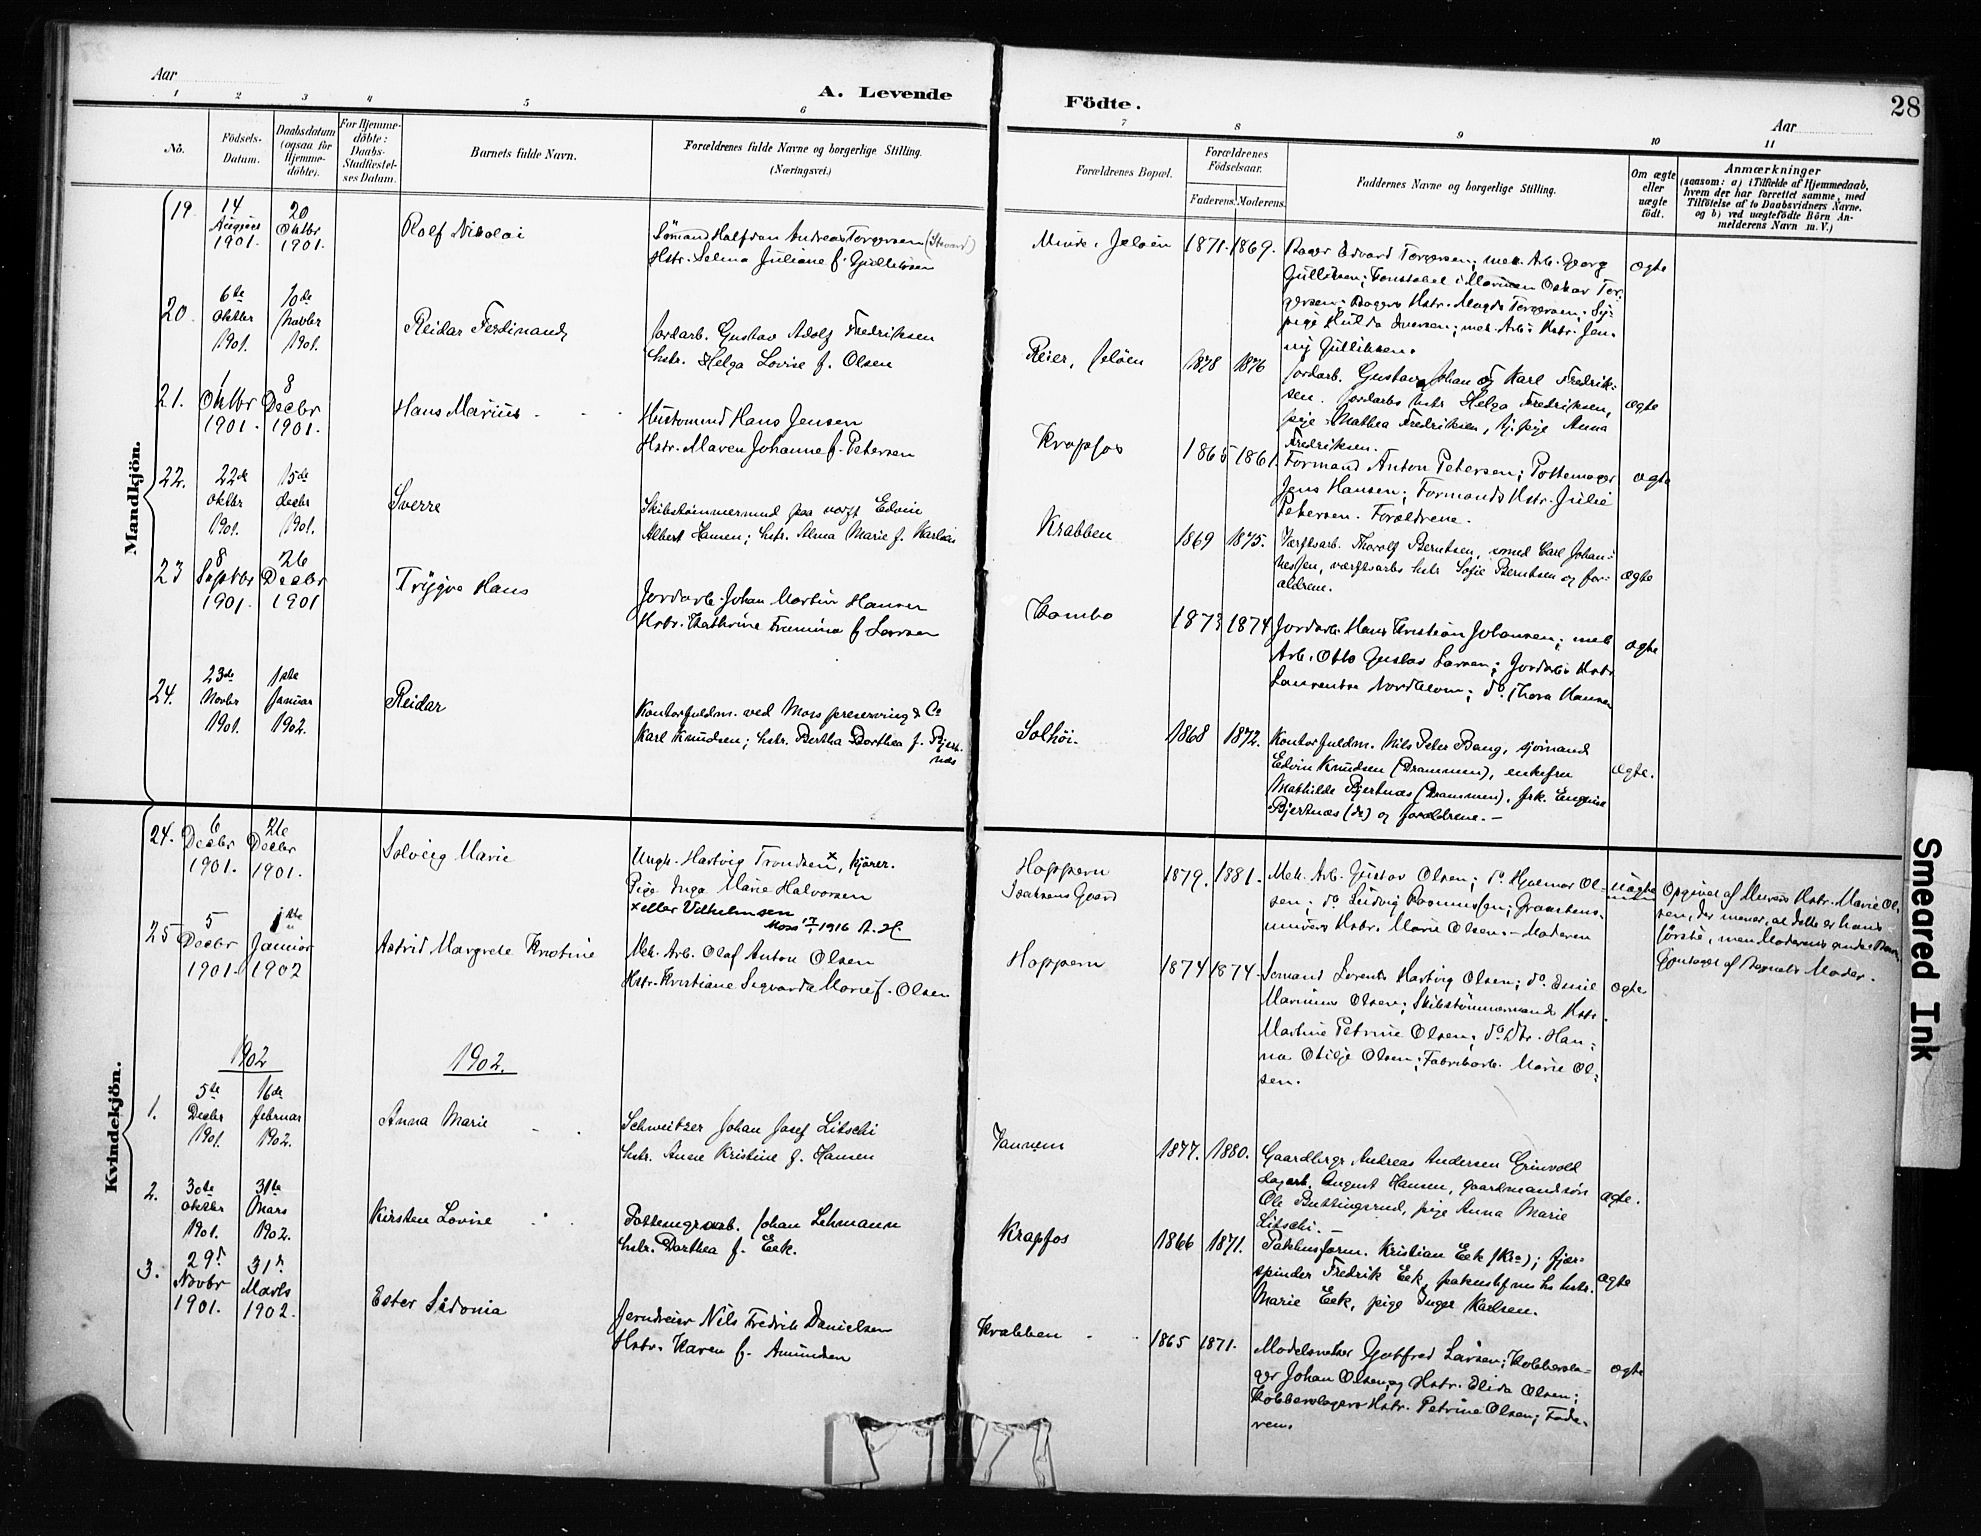 Aar
A. Levende Födte.
28
Aar
1 2 3 4 5 6 7 8 9 10 11
No.
Födsels-Datum.
Daabsdatum (ogsaa for Hjemme-döbte).
For Hjemme-döbte: Daabs-Stadfæstel-ses Datum.
Barnets fulde Navn.
Forældrenes fulde Navne og borgerlige Stilling.
(Næringsvei.)
Forældrenes Bopæl.
Forældrenes Födselsaar.
Faderens. Moderens.
Faddernes Navne og borgerlige Stilling.
Om ægte eller uægte födt.
Anmærkninger
(saasom: a) i Tilfælde af Hjemmedaab,
hvem der har forrettet samme, med
Tilföielse af to Daabsvidners Navne.
og b) ved uægtefödte Börn An-
melderens Navn m. V.)
Mandkjön.
19. 14 August 1901. 20 Oktbr 1901.
Rolf Nikolai
Sömand Halfdan Andreas Torgersen (Steward)
Hstr. Selma Juliane f. Gulliksen
Minde, Jelöen 1871. 1869.
Bager Edvard Torgersen; mek. Arb. Georg
Gulliksen; Konstabel i Marinen Oskar Tor-
gersen; Bagers Hstr. Magda Torgersen; Sy-
pige Hulda Iversen; mek. Arbs Hstr. Jen-
ny Gulliksen.
ægte
20. 6te Oktbr 1901. 10de Novbr 1901.
Reidar Ferdinand
Jordarb. Gustav Adolf Fredriksen
hstr. Helga Lovise f. Olsen
Reier, Jelöen 1878 1876
Jordarb. Gustav Johan og Karl Fredrik-
sen. Jordarbs hstr Helga Fredriksen,
pige Mathea Fredriksen, tj. pige Anna
Fredriksen.
ægte
21. 1 Oktbr 1901. 8 Decbr 1901.
Hans Marius
Hustomend Hans Jensen
Hstr. Maren Johanne f. Petersen
Krapfos 1865 1861.
Formand Anton Petersen; Pottemager
Jens Hansen; Formands Hstr. Julie
Petersen. Forældrene.
ægte
22. 22de Oktbr 1901. 15de decbr 1901.
Sverre
Skibstömmermand paa værft Edvin
Albert Hansen; hstr. Alma Marie f. Karlsen
Krabben 1869 1875.
Værftsarb. Thorolf Berntsen, smed Carl Johan-
nessen, værftsarbs hstr Sofie Berntsen og for-
ældrene.
ægte
23 8 Septbr 1901. 26 Decbr 1901
Trygve Hans
Jordarb. Johan Martin Hansen
Hstr. Kathrine Framina f. Larsen
Kambo 1873 1874
Jordarb. Hans Kristian Johansen; mek
Arb. Otto Gustav Larsen; Jordarbs Hstr
Laurentse Nordheim; do. Thora Hansen
ægte
24. 23de Novbr 1901. 1ste Januar 1902.
Reidar
Kontorfuldm. ved Moss preserving & Co
Karl Knudsen; hstr. Bertha Dorthea f. Bjert-
næs
Solhöi. 1868 1872.
Kontorfuldm. Nils Peter Bang, sjömand
Edvin Knudsen (Drammen), enkefru
Mathilde Bjertnæs (Drammen), frk.
Bjertnæs (do) og forældrene. -
ægte.
Kvindekjön.
24. 6 Decbr 1901. 26 Decbr 1901.
Solveig Marie
Ungk. Hartvig Trondsen x, kjörer.
Pige Inga Marie Halvorsen
x eller Vilhelmsen
Moss 1916 A. H
Hoppern
Isaksens Gaard 1879. 1881.
Mek. Arb. Gustav Olsen; do Hjalmar Ol-
sen; do. Ludvig Rasmussen; Graastens-
murers Hstr. Marie Olsen. - Moderen
uægte
Opgivet af Murers Hstr. Marie Ol-
sen, der mener, at dette er hans
første, men Moderens andet Barn
Gjentaget af Barnets Moder.
25 5 Decbr 1901. 1ste Januar 1902
Astrid Margrete Kristine
Mek. Arb. Olaf Anton Olsen
Hstr. Kristiane Sigvarda Marie f. Olsen
Hoppern 1874 1874.
Sømand Lorents Hartvig Olsen; do. Emil
Marinius Olsen; Skibstömmermands Hstr.
Martine Petrine Olsen; do. Dtr. Han-
na Otilje Olsen; Fabrikarb. Marie Ol-
sen.
ægte
1902 1902.
1. 5te Decbr 1901. 16de februar 1902.
Anna Marie
Schweitzer Johan Josef Litschi
hstr. Anne Kristine f. Hansen
Vannem 1877. 1880.
Gaardbrgr Andreas Andersen Grinvold
dagarb. August Hansen, gaardmandssøn
Ole Buttingsrud, pige Anna Marie
Litschi. -
ægte.
2. 30te Oktbr 1901. 31te Mars 1902.
Kirsten Lovise
Pottemagerarb. Johan Lehmann
hstr. Dorthea f. Eek.
Krapfos 1866 1871.
Pakhusform. Kristian Eek (Kra); fjær-
spinder Fredrik Eek, hstr.
Marie Eek, pige Inger Karlsen.
ægte
3. 29d Novbr 1901. 31d Marts 1902.
Ester Sidonia
Jerndreier Nils Fredrik Danielsen
Hstr. Karen f. Amundsen
Krabben 1865 1871.
Modelsnekker Gotfred Larsen; Kobbersla-
ger Johan Olsen og Hstr. Elida Olsen;
Kobberslagers Hstr. Petrine Olsen; Fade-
ren.
ægte
Smeared Ink